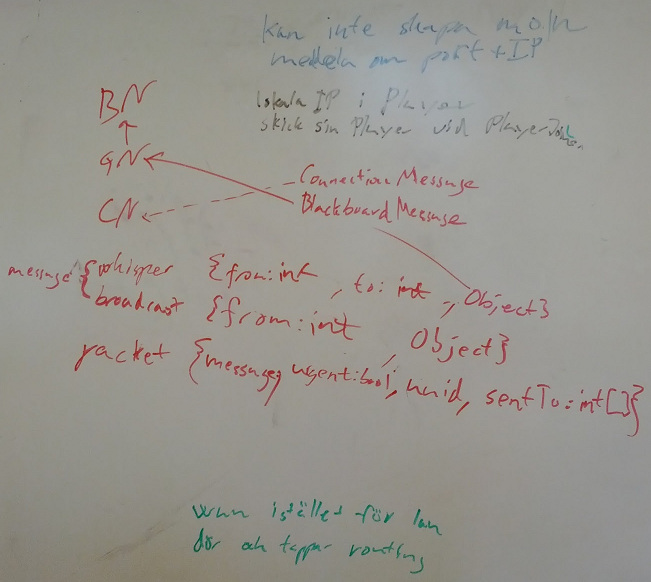 kan inte skapa moln
meddela om port + IP
lokala IP i Player
skick sin Player vid PlayerJoin
BN
GN
CN
ConnectionMessage
BlackboardMessage
message { whisper {from:int, to: int, Object}
broadcast {from:int, Object}
packet {message, urgent:bool, uuid, sentTo:int[]}
wan istället för lan
dör och tappar routing